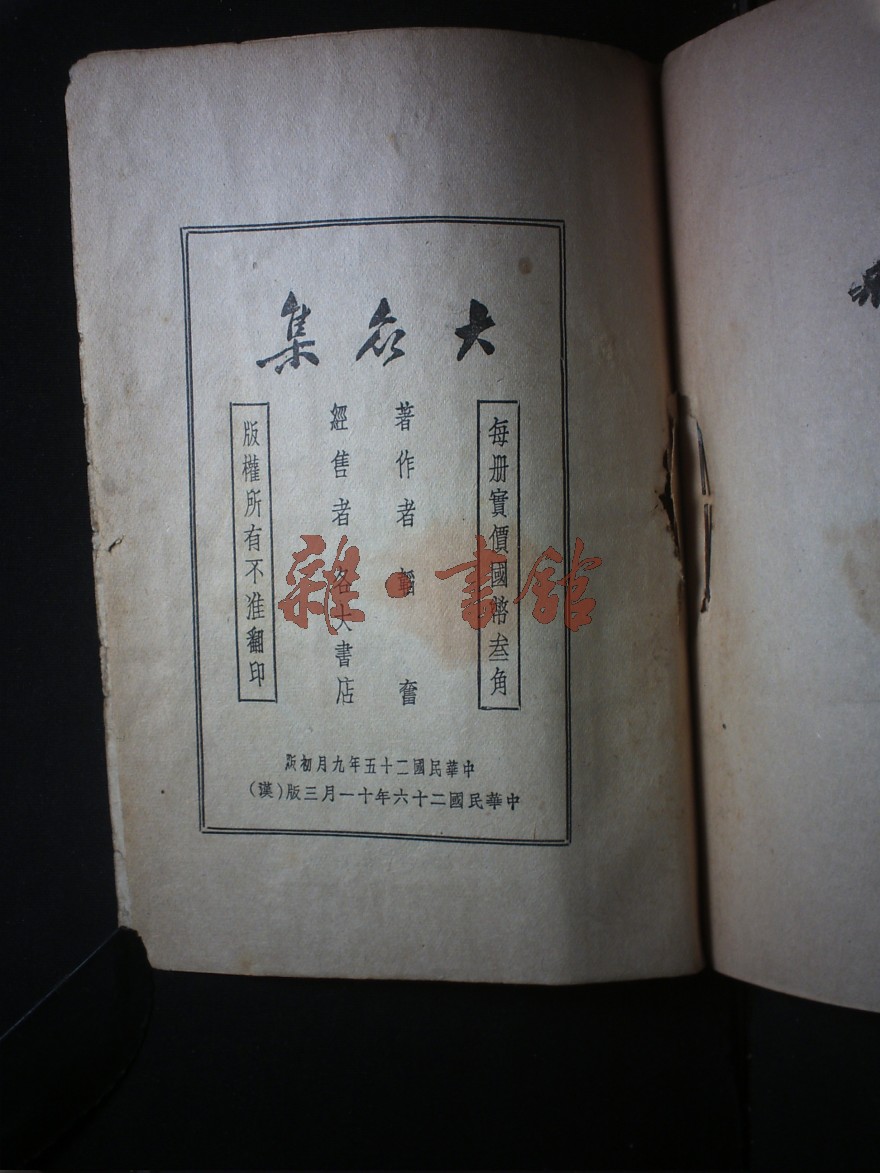 大众集
每册實價國幣叁角
著作者 韜奮
經售者 各大書店
版權所有不准翻印
中華民國二十五年九月初版
中華民國二十六年十一月三版(漢)
雜·書館